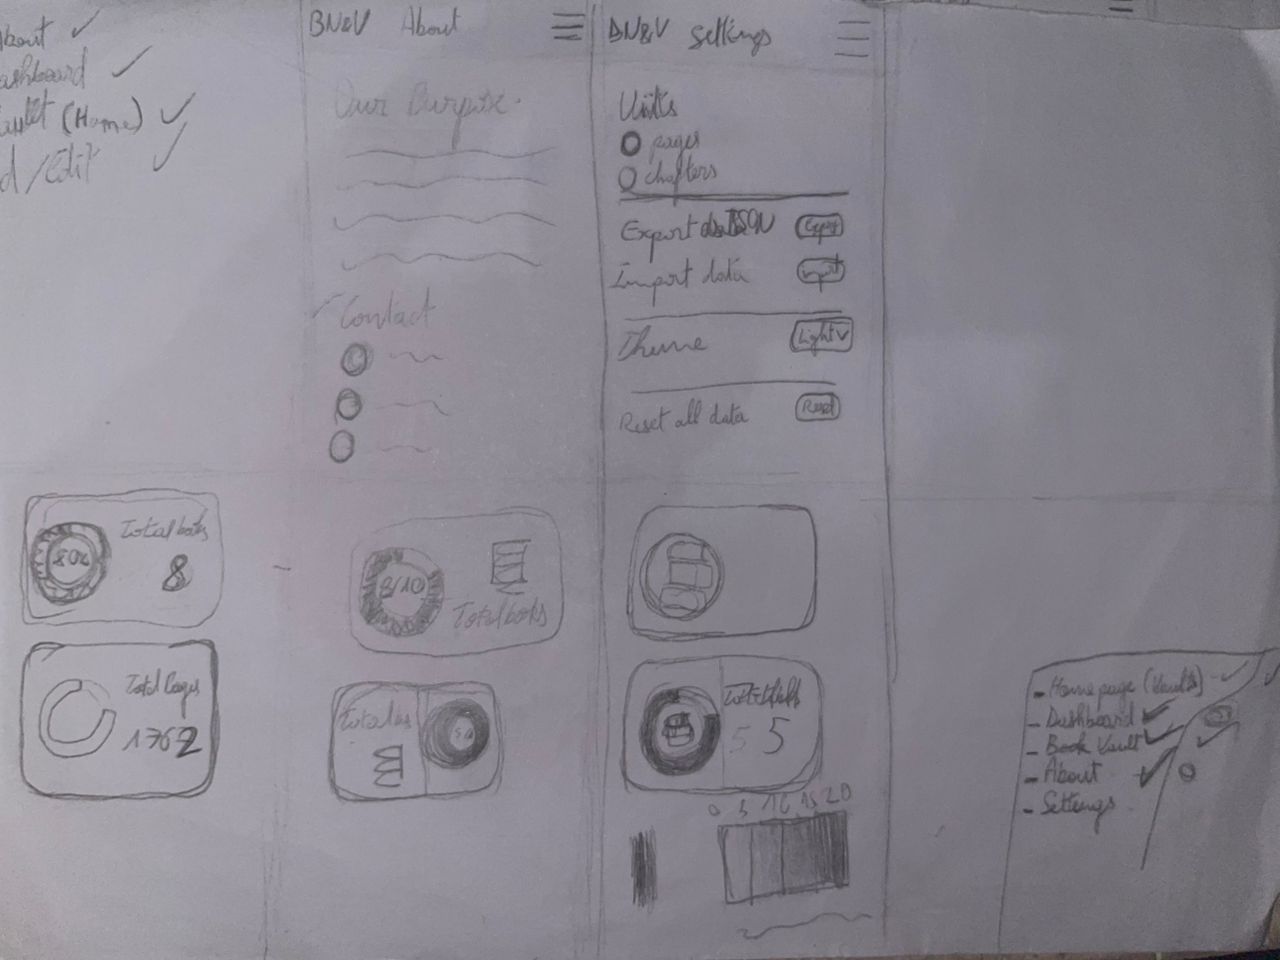 About ✓
ashboard ✓
(Home) ✓
d/Edit ✓
BN&V About
Our Purpose.
Contact
BN&V Settings
Units
pages
chapters
Export JSON Export
Import data import
Theme Light
Reset all data Reset
Total books
80%
8
Total Pages
1762
8/10
Total books
5 5
0 5 10 15 20
- Home page (Vault) ✓
- Dashboard ✓
- Book Vault ✓
- About ✓
- Settings